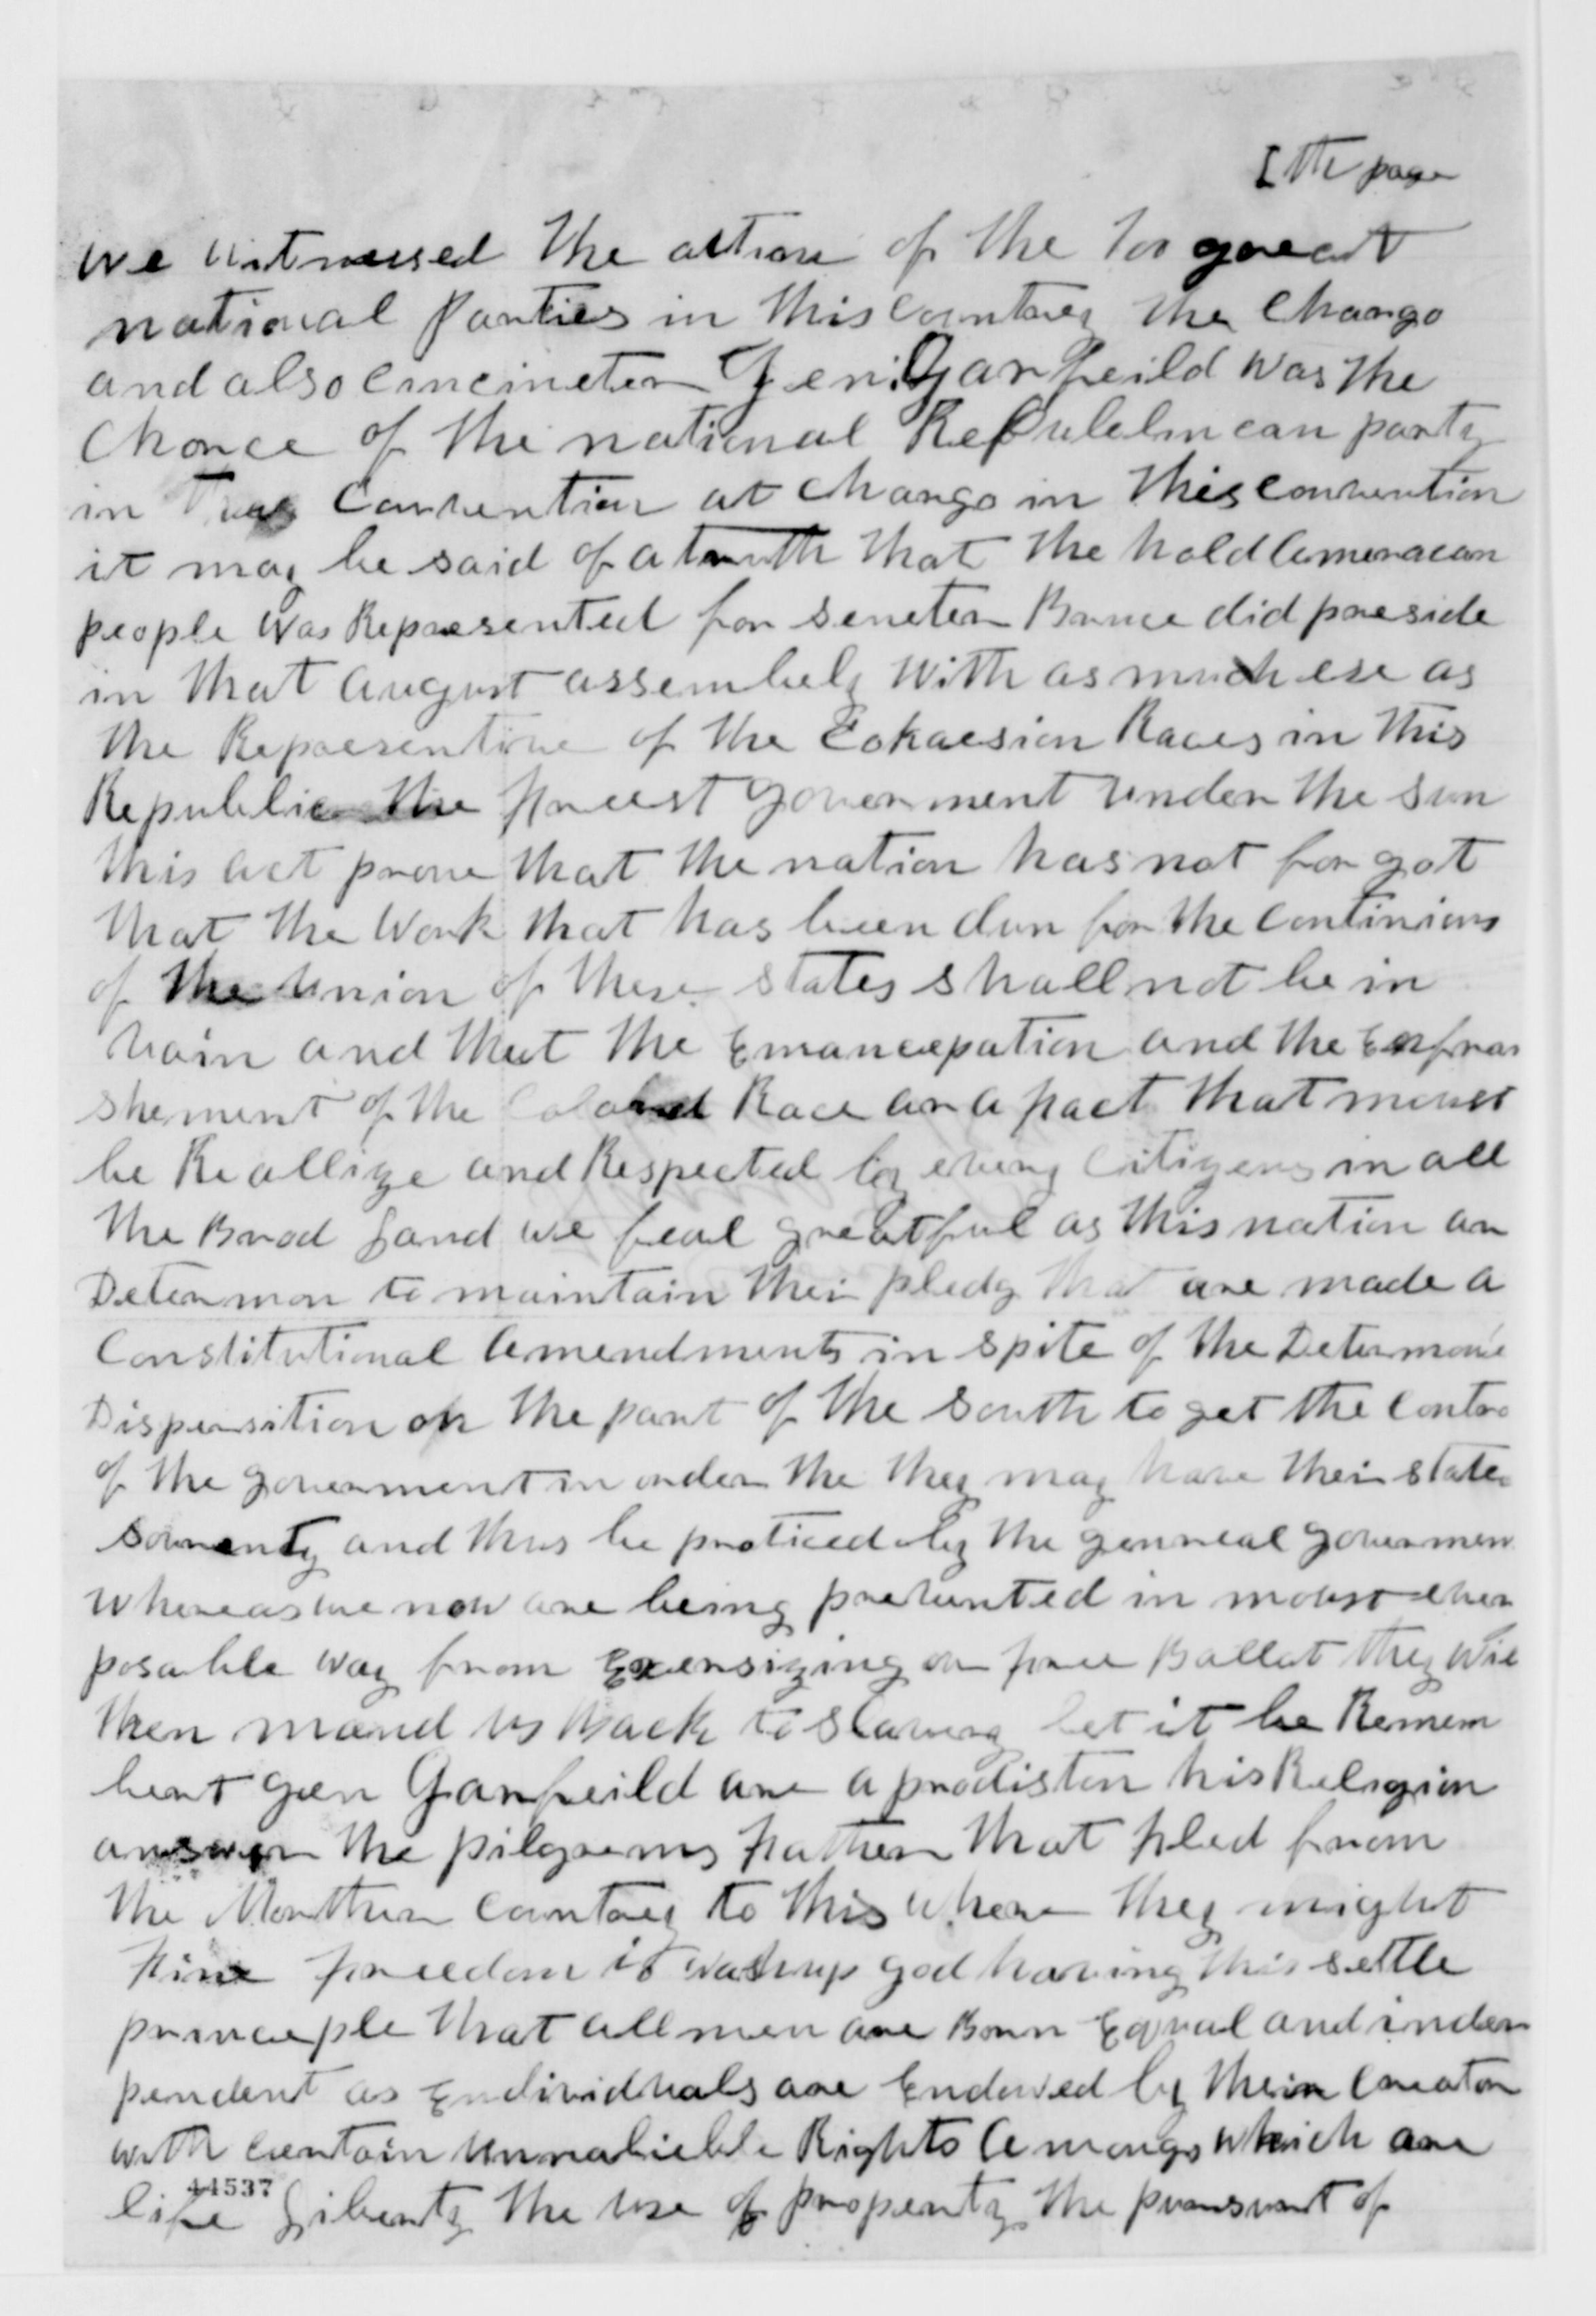 I th page
we witnessed the attion of the too great
national Parties in this Country the Chango
and also Cincineter Gen. Garfeild was the
Chonce of the national Republican party
in Convention at Chango in this Convention
it may be said of a truth that the hold Ameracan
people was Represented for seneter Bruce did preside
in that august assembely with as much ese as
the Representive of the Cokaesion Races in this
Republic the freest goverment under the sun
this act prove that the nation has not for got
that the Work that has been dun for the Continions
of the Union of these states shall not be in
vain and that the Emancepation and the Enfran
shement of the Colored Race ar a fact that moust
be Reallize and Respected by every Citizens in all
the Brod Land we feal greatful as this nation ar
Determon to maintain their pledg that are made a
Constitutional Amendments in spite of the Determone
Dispersition on the part of the South to get the Contro
of the goverment in order the they may have their state
sovrenty and thus be proticed by the genneal govermen
whereas we now are being prevunted in moust ever
posable way from Exersizing our free Ballot they wil
then mand us Back to slavery let it be Remem
bert gen Garfeild are a prodisten his Religion
answer the pilgrems father that fled from
the Monther Country to this where they might
fine freedom to washup god having this settle
princeple that all men are Born Eqrual and inder
pendent as Endividhals are Endowed by their Creator
with certain unnaliebble Rights Amongs which are
life Liberty the use of property the puransurt of
44537